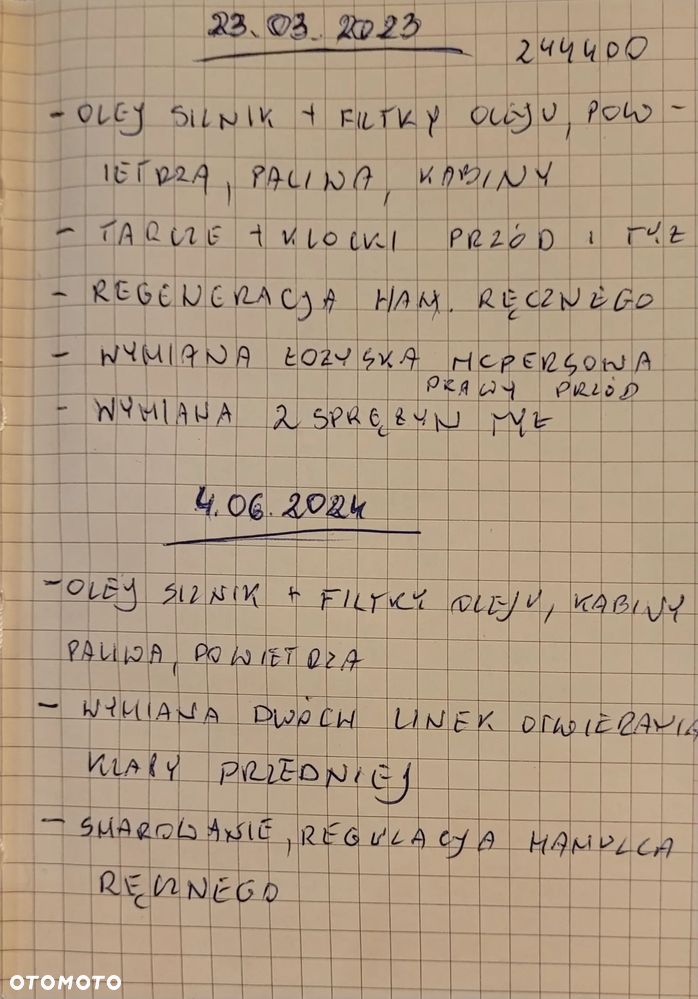 23.03.2023
244400
- OLEJ SILNIK + FILTRY OLEJU, POW -
IETRZA, PALIWA, KABINY
- TARCZE + KLOCKI PRZÓD I TYŁ
- REGENERACJA HAM. RĘCZNEGO
- WYMIANA ŁOZYSKA MCPERSONA
PRAWY PRZÓD
- WYMIANA 2 SPRĘŻYN TYŁ
4.06.2024
- OLEJ SILNIK + FILTRY OLEJU, KABINY
PALIWA, POWIETRZA
- WYMIANA DWÓCH LINEK OTWIERANIA
KLAPY PRZEDNIEJ
- SMAROWANIE, REGULACJA HAMULCA
RĘCZNEGO
OTOMOTO